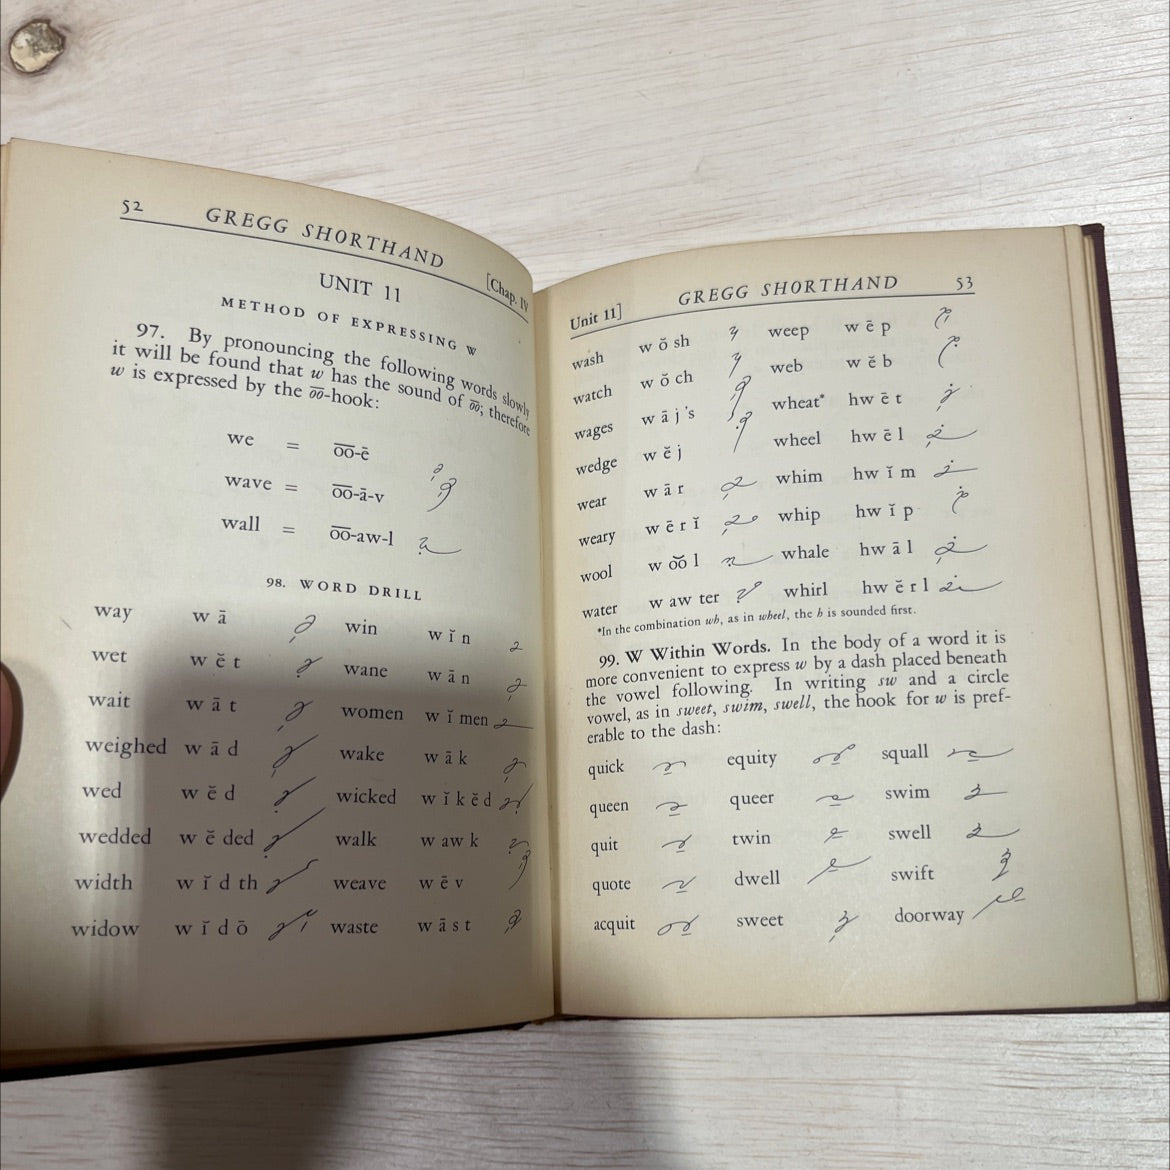 52 GREGG SHORTHAND [Chap. IV
UNIT 11
METHOD OF EXPRESSING W
97. By pronouncing the following words slowly
it will be found that w has the sound of o͞o; therefore
w is expressed by the o͞o-hook:
we = o͞o-ē
wave = o͞o-ā-v
wall = o͞o-aw-l
98. WORD DRILL
way w ā win w ĭ n
wet w ĕ t wane w ā n
wait w ā t women w ĭ men
weighed w ā d wake w ā k
wed w ĕ d wicked w ĭ k ĕ d
wedded w ĕ ded walk w aw k
width w ĭ d th weave w ē v
widow w ĭ d ō waste w ā s t
Unit 11] GREGG SHORTHAND 53
wash w ŏ sh weep w ē p
watch w ŏ ch web w ĕ b
wages w ā j 's wheat* hw ē t
wedge w ĕ j wheel hw ē l
wear w ā r whim hw ĭ m
weary w ē r ĭ whip hw ĭ p
wool w o͝o l whale hw ā l
water w aw ter whirl hw ĕ r l
*In the combination wh, as in wheel, the h is sounded first.
99. W Within Words. In the body of a word it is
more convenient to express w by a dash placed beneath
the vowel following. In writing sw and a circle
vowel, as in sweet, swim, swell, the hook for w is pref-
erable to the dash:
quick equity squall
queen queer swim
quit twin swell
quote dwell swift
acquit sweet doorway